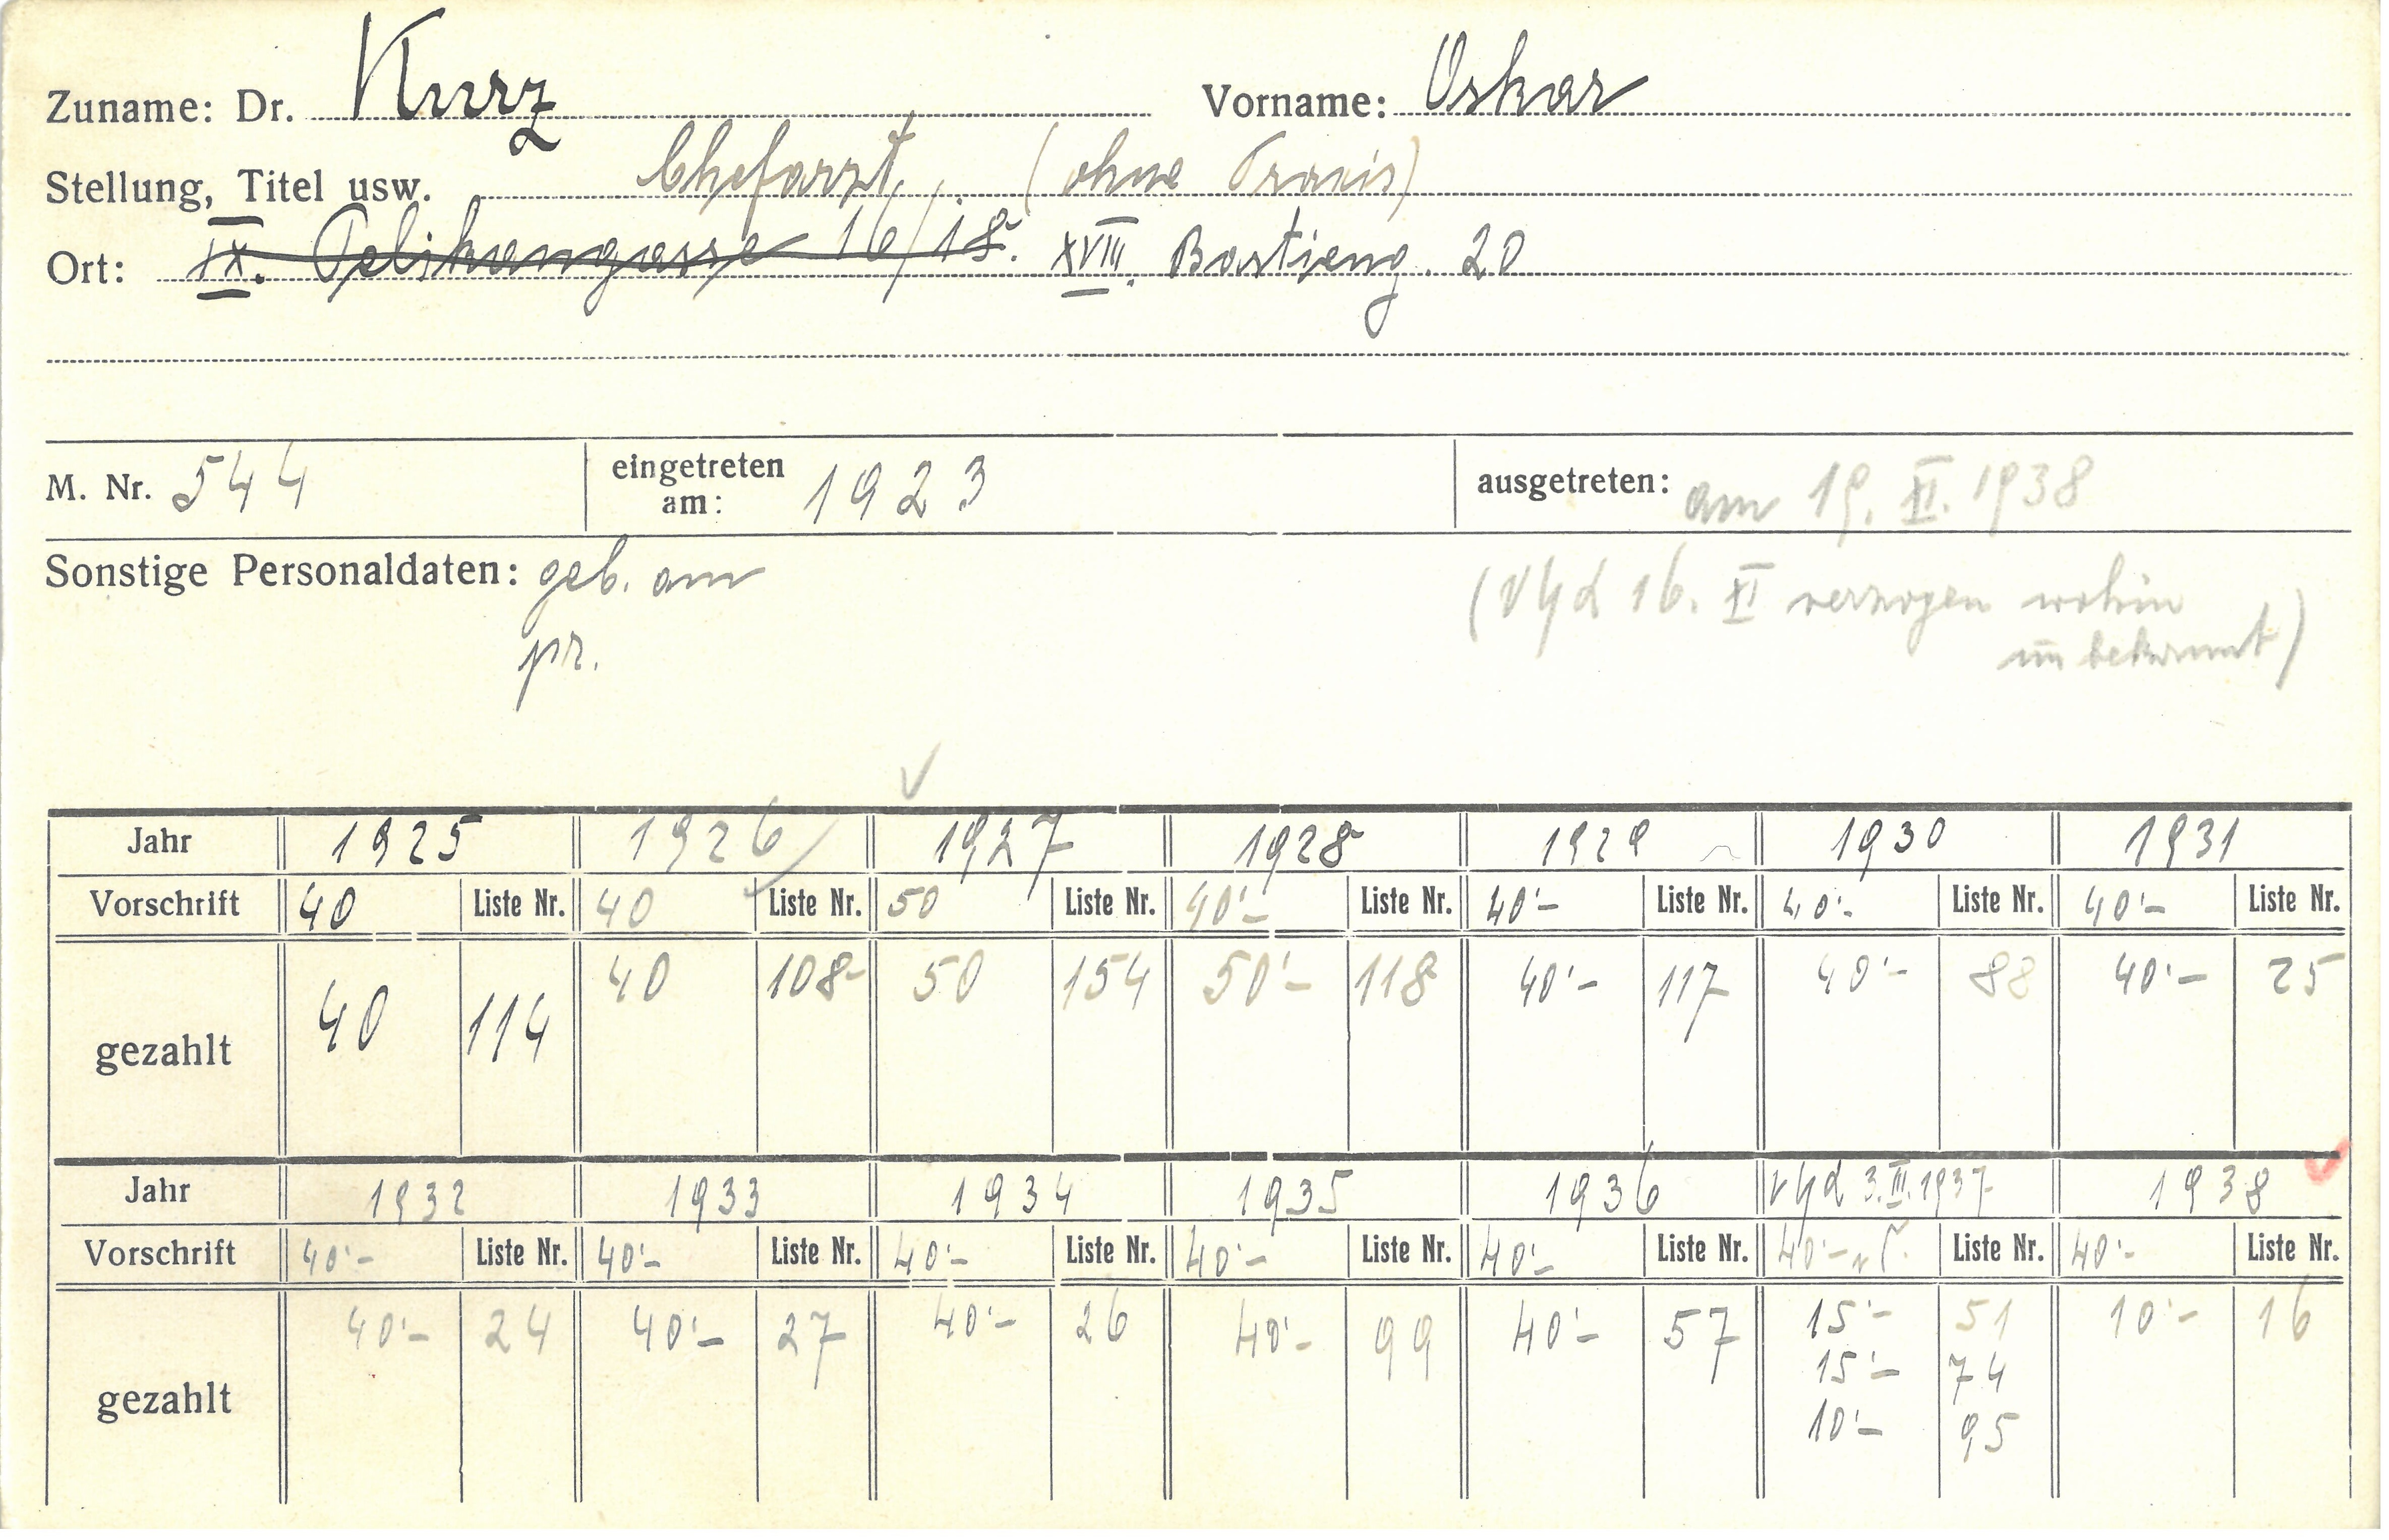 Zuname: Dr. Kurz Vorname: Oskar
Stellung, Titel usw. Chefarzt, (ohne Praxis)
Ort: IX. Pelikangasse 16/18. XVIII. Bastieng. 20
M. Nr. 544 eingetreten am: 1923 ausgetreten: am 19. XI. 1938
Sonstige Personaldaten: geb. am (16. XI verzogen wohin
pr. unbekannt)
Jahr 1925 1926 1927 1928 1929 1930 1931
Vorschrift 40 Liste Nr. 40 Liste Nr. 50 Liste Nr. 40'- Liste Nr. 40'- Liste Nr. 40'- Liste Nr. 40'- Liste Nr.
gezahlt 40 114 40 108 50 154 50'- 118 40'- 117 40'- 88 40'- 25
Jahr 1932 1933 1934 1935 1936 3. III. 1937 1938
Vorschrift 40'- Liste Nr. 40'- Liste Nr. 40'- Liste Nr. 40'- Liste Nr. 40'- Liste Nr. 40'- Liste Nr. 40'- Liste Nr.
gezahlt 40'- 24 40'- 27 40'- 26 40'- 99 40'- 57 15'- 51 10'- 16
15'- 74
10'- 95